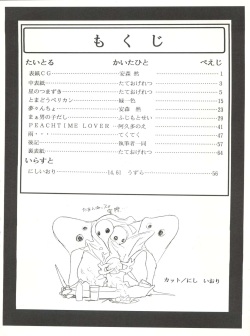 もくじ
たいとる かいたひと ぺえじ
表紙CG 安森 然 1
中表紙 たておげれつ 3
星のつまずき たておげれつ 5
とまどうペリカン 緑一色 15
夢んちょ 安森 然 23
まぁ男の子だし ふじもとせい 29
PEACHTIME LOVER 阿久多のえ 41
雨・・・ てくてく 47
後記 執筆者一同 57
裏表紙 たておげれつ 64
いらすと
にしいおり 14, 61 うずら 56
カット/にし いおり